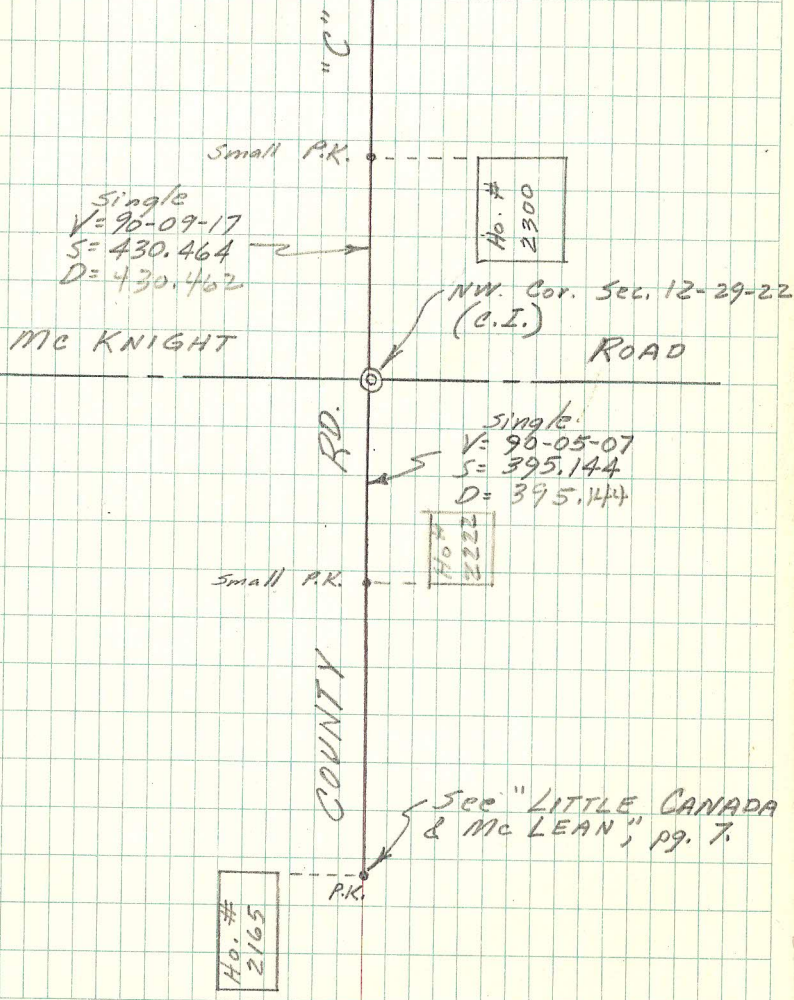 "C"
Small P.K.
Ho. #
2300
Single
V= 90-09-17
S= 430.464
D= 430.462
NW. Cor. Sec. 12-29-22
(C.I.)
Mc KNIGHT ROAD
RD.
Single
V= 90-05-07
S= 395.144
D= 395.144
Ho #
2222
Small P.K.
COUNTY
See "LITTLE CANADA
& Mc LEAN", pg. 7.
P.K.
Ho. #
2165